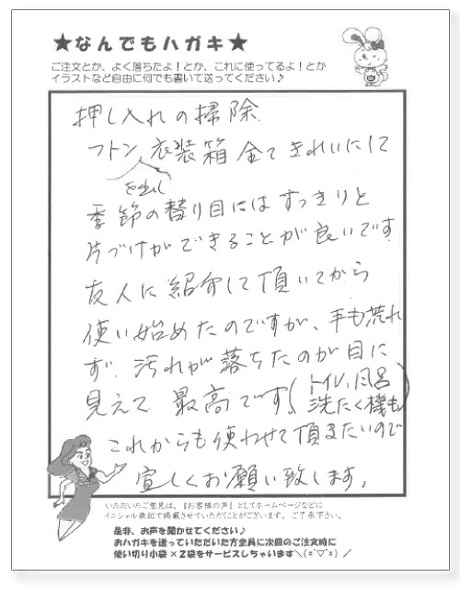 ★なんでもハガキ★
ご注文とか、よく落ちたよ！とか、これに使ってるよ！とか
イラストなど自由に何でも書いて送ってください♪
押し入れの掃除
フトン 衣装箱 全てきれいにして
を出し
季節の替り目にはすっきりと
片づけができることが良いです
友人に紹介して頂いてから
使い始めたのですが、手も荒れ
ず、汚れが落ちたのが目に
見えて 最高です(トイレ、風呂
洗たく機も)
これからも使わせて頂きたいので
宜しくお願い致します。
いただいたご意見は、『お客様の声』としてホームページなどに
イニシャル表記で掲載させていただくことがございます。ご了承下さい。
是非、お声を聞かせてください♪
おハガキを送っていただいた方全員に次回のご注文時に
使い切り小袋×2袋をサービスしちゃいます＼(*ﾟ▽ﾟ*)／